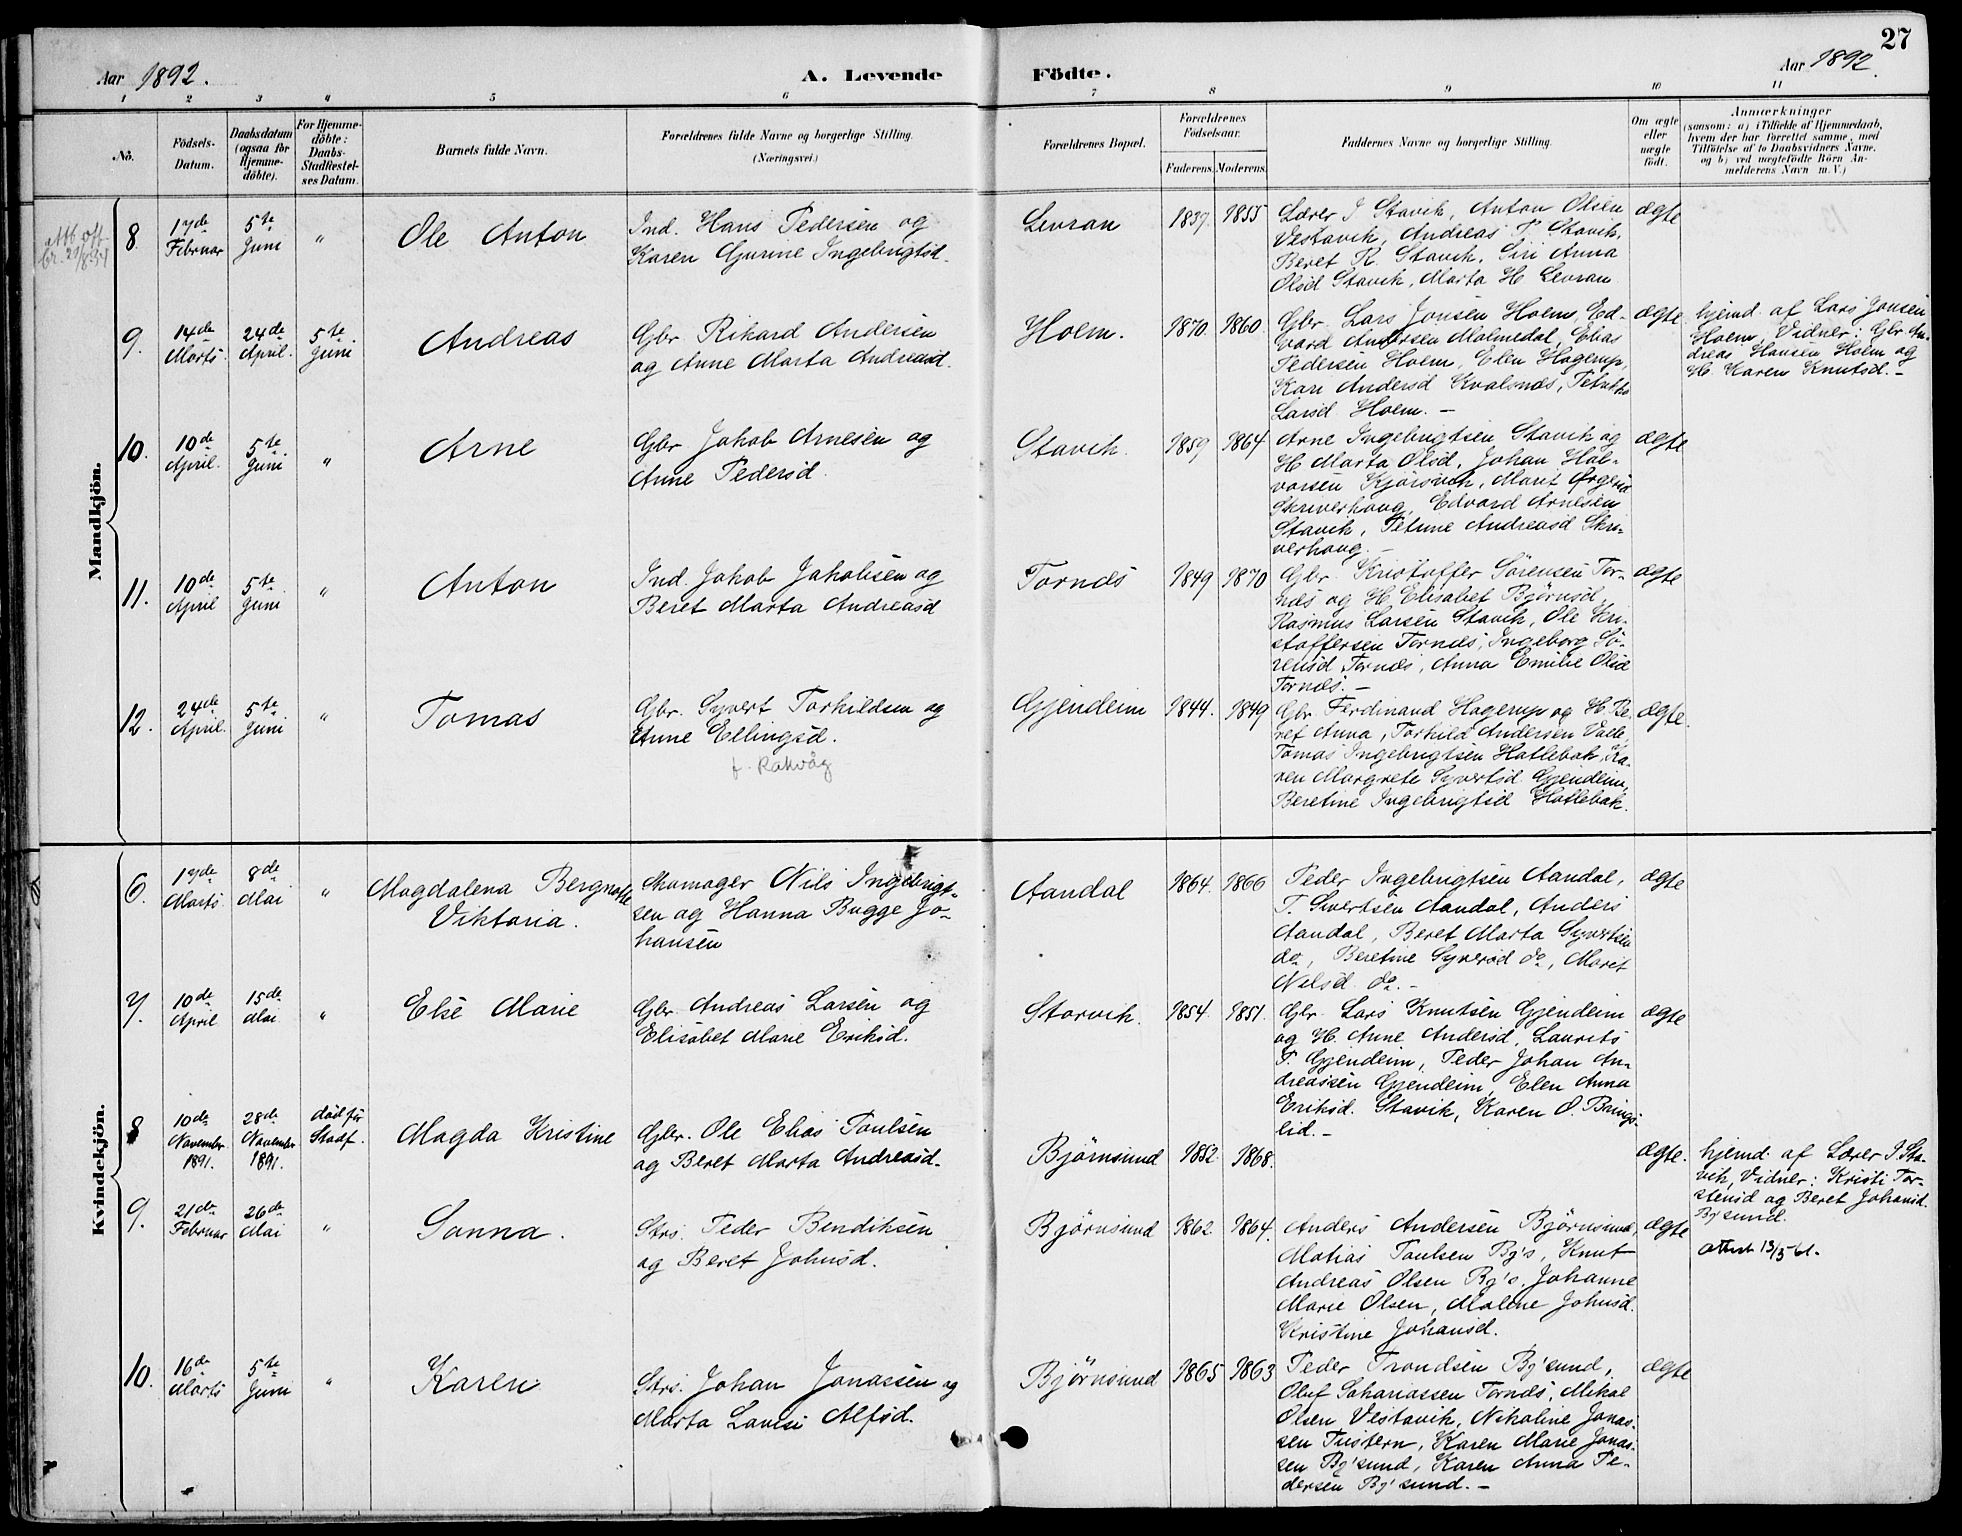 27
Aar 1892. A. Levende Födte. Aar 1892.
1 2 3 4 5 6 7 8 9 10 11
No.
Födsels-
Datum.
Daabsdatum
(ogsaa for
Hjemme-
döbte).
For Hjemme-
döbte:
Daabs-
Stadfestel-
ses Datum.
Barnets fulde Navn.
Forældrenes fulde Navne og borgerlige Stilling.
(Næringsvei.)
Forældrenes Bopæl.
Forældrenes
Födselsaar.
Faderens. Moderens.
Faddernes Navne og borgerlige Stilling.
Om ægte
eller
uægte
födt.
Anmærkninger
(saasom: a) i Tilfælde af Hjemmedaab,
hvem der har forrettet samme, med
Tilföielse af to Daabsvidners Navne,
og b) ved uægtefödte Börn An-
melderens Navn m. V.)
Mandkjön.
8.
17de
Februar
5te
Juni
"
Ole Anton
Ind. Hans Pedersen og
Karen Gurine Ingebrigtsd.
Levran
1837.
1855
Lærer I Stavik, Anton Olsen
Vestavik, Andreas P. Stavik,
Beret R. Stavik, Siri Anna
Olsd Stavik, Marta H Levran
ægte
9.
14de
Marts.
24de
April.
5te
Juni
Andreas
Gbr. Rikard Andersen
og Anne Marta Andreasd.
Holm.
1870.
1860.
Gbr. Lars Jonsen Holm, Ed-
vard Andersen Malmedal, Elias
Pedersen Holm, Elen Hagerup,
Kari Andersd Kvalsnæs,
Larsd. Holm. –
ægte
hjemd. af Lars Jonsen
Holm, Vidner: Gbr An-
dreas Hansen Holm og
H. Karen Knutsd. –
10.
10de
April.
5te
Juni
"
Arne
Gbr. Jakob Arnesen og
Anne Pedersd.
Stavik.
1859
1864
Arne Ingebrigtsen Stavik og
H Marta Olsd, Johan Hal-
vorsen Kjørsvik, Marit
Skriverhaug, Edvard Arnesen
Stavik, Petrine Andreasd Skri-
verhaug. –
ægte
11.
10de
April
5te
Juni
"
Anton
Ind. Jakob Jakobsen og
Beret Marta Andreasd
Tornæs
1849
1870
Gbr. Kristoffer Sørensen Tor-
næs og H. Elisabet Bjørnsd,
Rasmus Larsen Stavik, Ole Kri-
stoffersen Tornæs, Ingeborg Sø-
rensd Tornæs, Anna Emilie Olsd
Tornæs. –
ægte
12.
24de
April.
5te
Juni
"
Tomas
Gbr. Syvert Torkildsen og
Anne Ellingsd.
f. Rakvåg
Gjendeim
1844.
1849
Gbr. Ferdinand Hagerup og H. Be-
ret Anna, Torkild Andersen Vaele,
Tomas Ingebrigtsen Hatlebak, Ka-
ren Margrete Syvertsd. Gjendeim,
Beretine Ingebrigtsd Hatlebak.
ægte.
Kvindekjön.
6.
17de
Marts.
8de
Mai
"
Magdalena
Viktoria.
Skomager Nils Ingebrigt-
sen og Hanna Bugge Jo-
hansen
Aandal
1864.
1866
Peder Ingebrigtsen Aandal,
P. Sivertsen Aandal, Anders
Aandal, Beret Marta Syvertsen
do, Beretine Syversd do, Marit
Nilsd. do. –
ægte
7.
10de
April
15de
Mai
"
Else Marie
Gbr. Andreas Larsen og
Elisabet Marie Eriksd.
Storvik.
1854.
1851.
Gbr. Lars Knutsen Gjendeim
og H. Anne Andersd, Laurits
P. Gjendeim, Peder Johan An-
dreassen Gjendeim, Elen Anna
Eriksd. Stavik, Karen O. Brings-
lid. –
ægte
8
10de
November
1891.
28de
November
1891.
død før
Stadf.
Magda Kristine
Gbr. Ole Elias Paulsen
og Beret Marta Andreasd.
Bjørnsund
1852.
1868.
ægte.
hjemd. af Lærer I. Sta-
vik, Vidner: Kristi Tor-
stensd og Beret Johansd.
Bj'sund.
9.
21de
Februar
26de
Mai
"
Sanna.
Strs. Peder Bendiksen
og Beret Johnsd.
Bjørnsund
1862.
1864.
Anders Andersen Bjørnsund,
Matias Paulsen Bj's, Knut
Andreas Olsen Bj's, Johanne
Marie Olsen, Maline Johnsd.
Kristine Johansd.
ægte
attest 13/5-61.
10.
16de
Marts
5te
Juni
"
Karen
Strs. Johan Jonassen og
Marta Lovise Alfsd.
Bjørnsund
1865
1863
Peder Trondsen Bj'sund,
Oluf Sakariassen Tornæs, Mikal
Olsen Vestavik, Nikoline Jonas-
sen Tustern, Karen Marie Jonas-
sen Bj'sund, Karen Anna Pe-
dersen Bj'sund. –
ægte